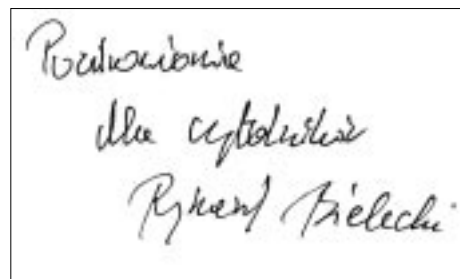 Pozdrowienia
dla czytelników
Ryszard Bielecki